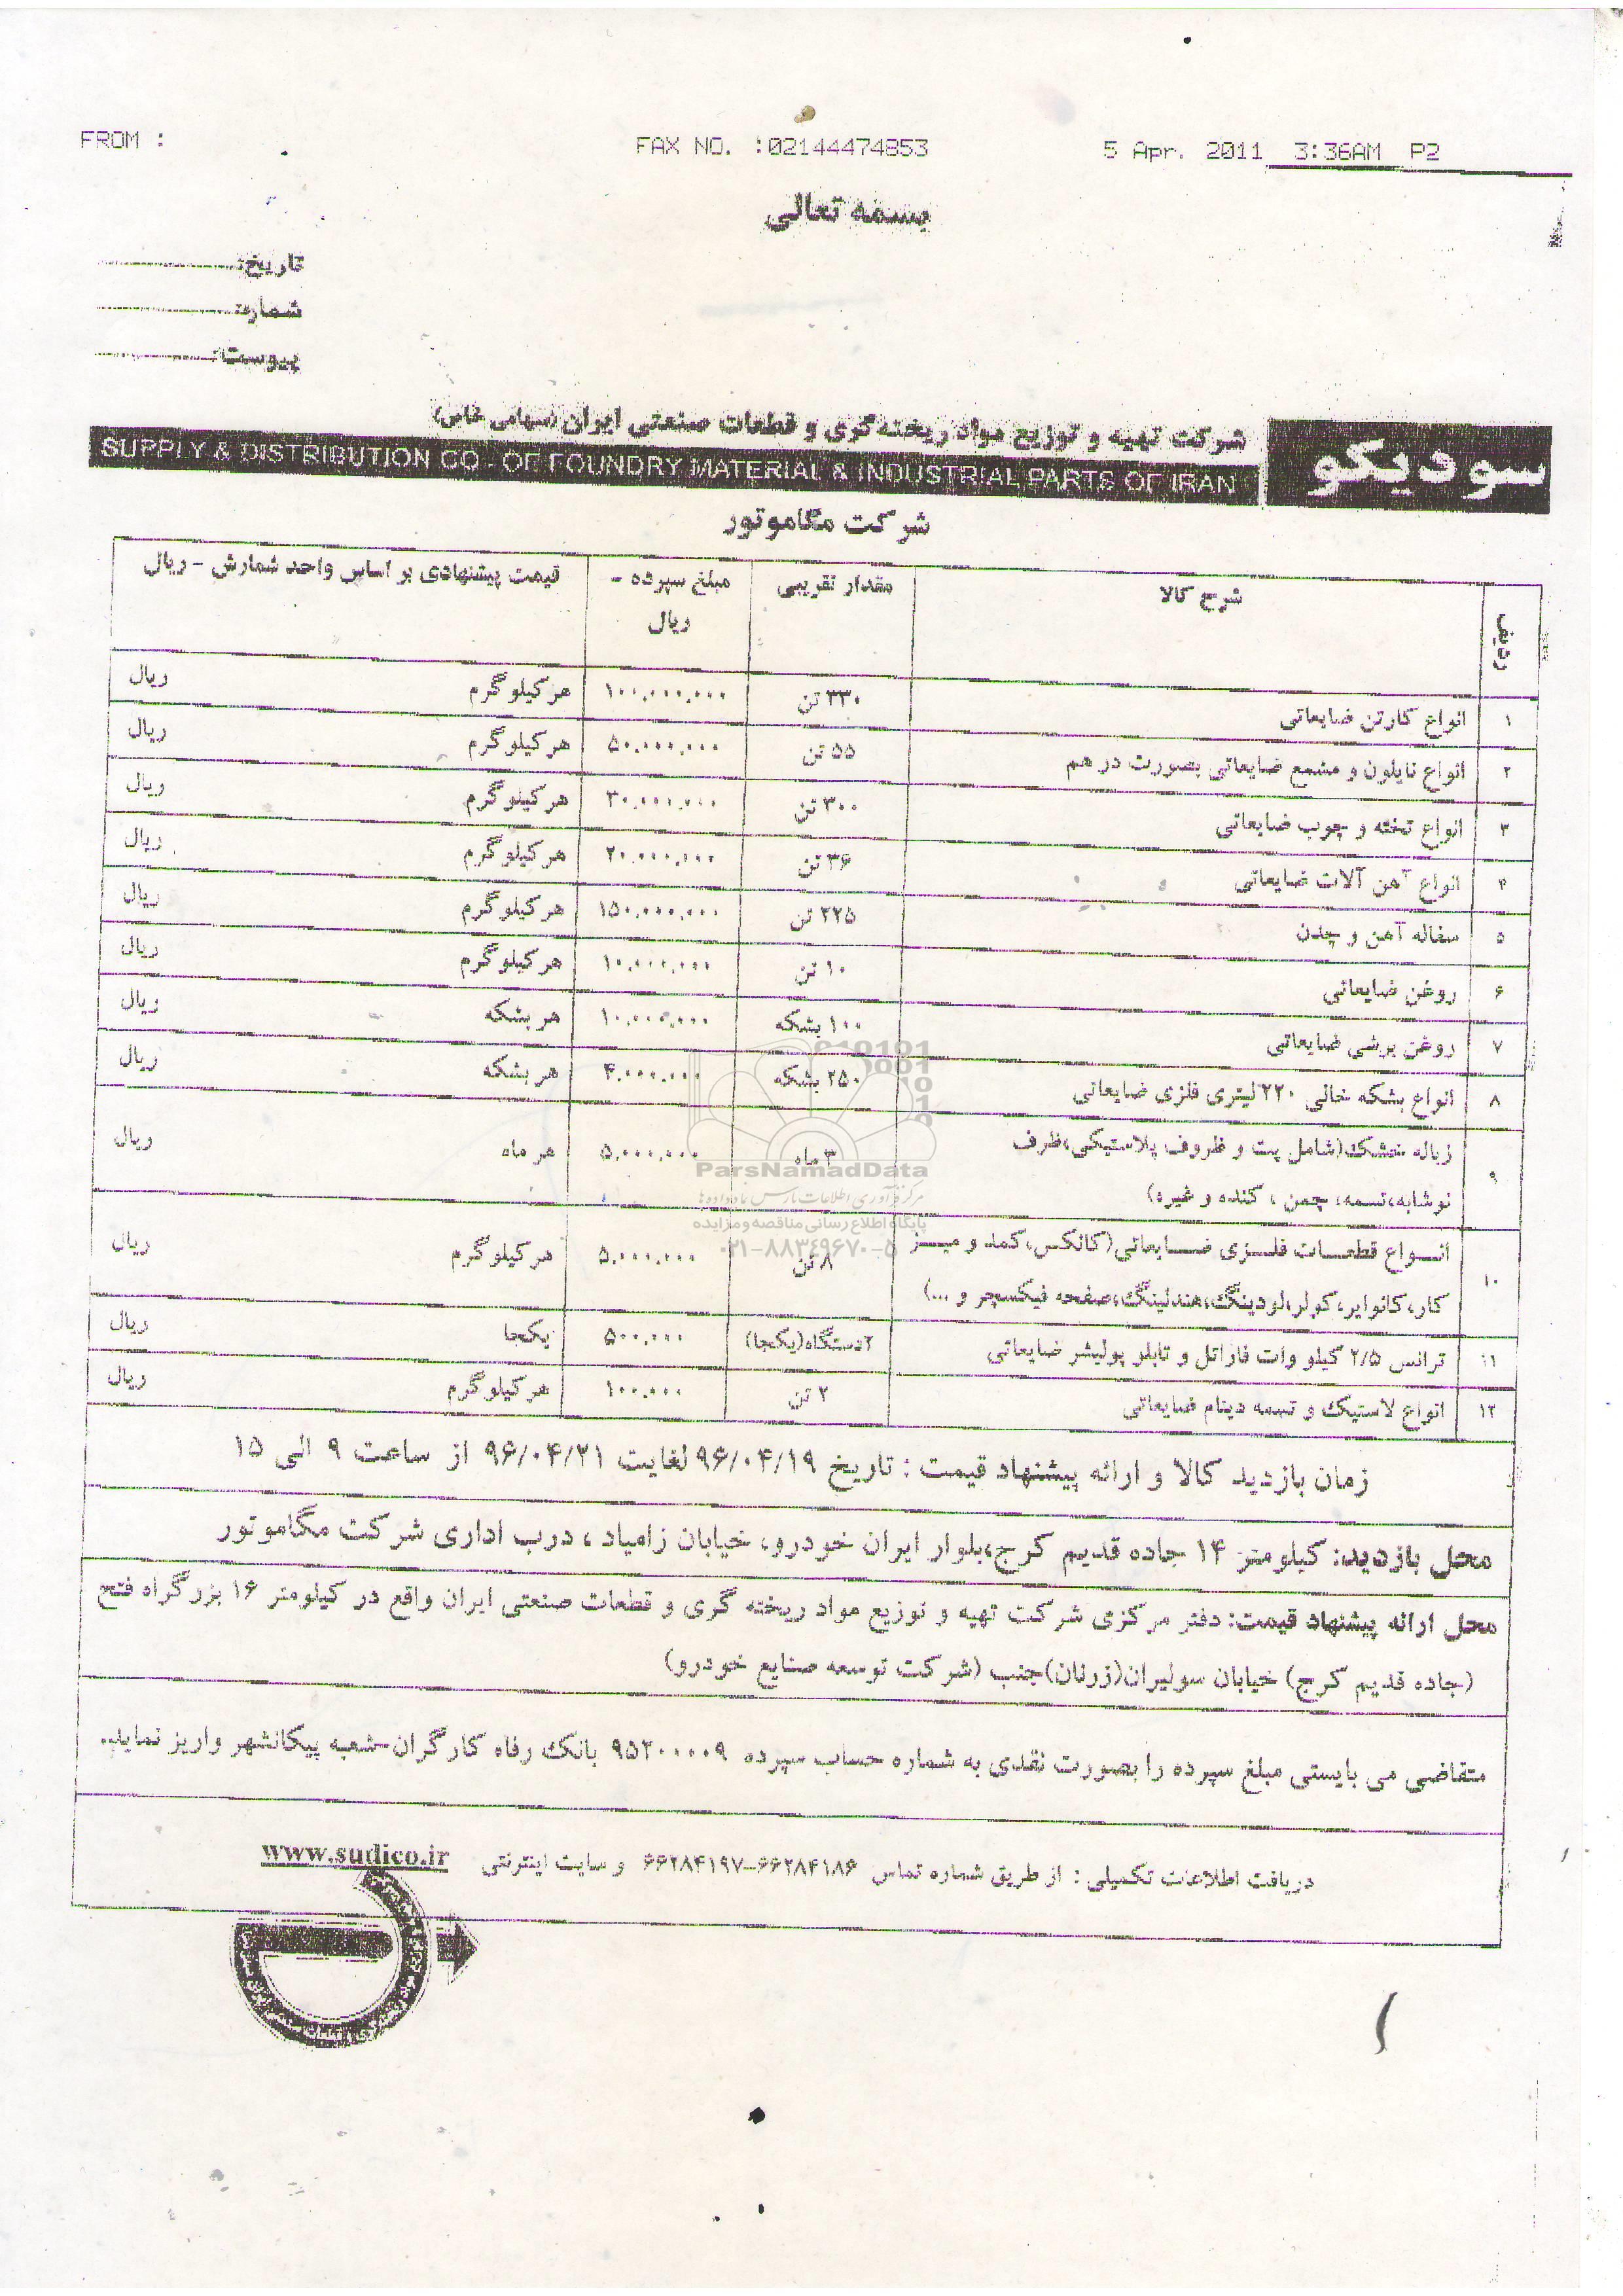 FROM :
FAX NO. :02144474853
5 Apr. 2011 3:36AM P2
بسمه تعالی
تاریخ:
شماره:
پیوست:
شرکت تهیه و توزیع مواد ریخته‌گری و قطعات صنعتی ایران (سهامی خاص)
سودیکو
SUPPLY & DISTRIBUTION CO - OF FOUNDRY MATERIAL & INDUSTRIAL PARTS OF IRAN
شرکت مگاموتور
ردیف شرح کالا مقدار تقریبی مبلغ سپرده - ریال قیمت پیشنهادی بر اساس واحد شمارش - ریال
۱ انواع کارتن ضایعاتی ۳۳۰ تن ۱۰۰.۰۰۰.۰۰۰ هر کیلوگرم ریال
۲ انواع نایلون و مشمع ضایعاتی بصورت در هم ۵۵ تن ۵۰.۰۰۰.۰۰۰ هر کیلوگرم ریال
۳ انواع تخته و چوب ضایعاتی ۳۰۰ تن ۳۰.۰۰۰.۰۰۰ هر کیلوگرم ریال
۴ انواع آهن آلات ضایعاتی ۳۶ تن ۲۰.۰۰۰.۰۰۰ هر کیلوگرم ریال
۵ سفاله آهن و چدن ۲۲۵ تن ۱۵۰.۰۰۰.۰۰۰ هر کیلوگرم ریال
۶ روغن ضایعاتی ۱۰ تن ۱۰.۰۰۰.۰۰۰ هر کیلوگرم ریال
۷ روغن برشی ضایعاتی ۱۰۰ بشکه ۱۰.۰۰۰.۰۰۰ هر بشکه ریال
۸ انواع بشکه خالی ۲۲۰ لیتری فلزی ضایعاتی ۲۵۰ بشکه ۴.۰۰۰.۰۰۰ هر بشکه ریال
۹ زباله خشک(شامل پت و ظروف پلاستیکی،ظرف ۳ ماه ۵.۰۰۰.۰۰۰ هر ماه ریال
نوشابه،تسمه، چمن ، کنده و غیره)
ParsNamadData
مرکز فرآوری اطلاعات پارس نماد داده ها
پایگاه اطلاع رسانی مناقصه و مزایده
۰۲۱-۸۸۳۴۹۶۷۰-۵
۱۰ انواع قطعات فلزی ضایعاتی(کانکس،کمد و میز ۸ تن ۵.۰۰۰.۰۰۰ هر کیلوگرم ریال
کار،کانوایر،کولر،لودینگ،هندلینگ،صفحه فیکسچر و ...)
۱۱ ترانس ۲/۵ کیلو وات فازاتل و تابلر پولیشر ضایعاتی ۲دستگاه(یکجا) ۵۰۰.۰۰۰ یکجا ریال
۱۲ انواع لاستیک و تسمه دینام ضایعاتی ۲ تن ۱۰۰.۰۰۰ هر کیلوگرم ریال
زمان بازدید کالا و ارائه پیشنهاد قیمت : تاریخ ۹۶/۰۴/۱۹ لغایت ۹۶/۰۴/۲۱ از ساعت ۹ الی ۱۵
محل بازدید: کیلومتر ۱۴ جاده قدیم کرج،بلوار ایران خودرو، خیابان زامیاد ، درب اداری شرکت مگاموتور
محل ارائه پیشنهاد قیمت: دفتر مرکزی شرکت تهیه و توزیع مواد ریخته گری و قطعات صنعتی ایران واقع در کیلومتر ۱۶ بزرگراه فتح
(جاده قدیم کرج) خیابان سولیران(زرنان)جنب (شرکت توسعه صنایع خودرو)
متقاضی می بایستی مبلغ سپرده را بصورت نقدی به شماره حساب سپرده ۹۵۲۰۰۰۰۹ بانک رفاه کارگران-شعبه پیکانشهر واریز نماید.
دریافت اطلاعات تکمیلی : از طریق شماره تماس ۶۶۲۸۴۱۸۶-۶۶۲۸۴۱۹۷ و سایت اینترنتی www.sudico.ir